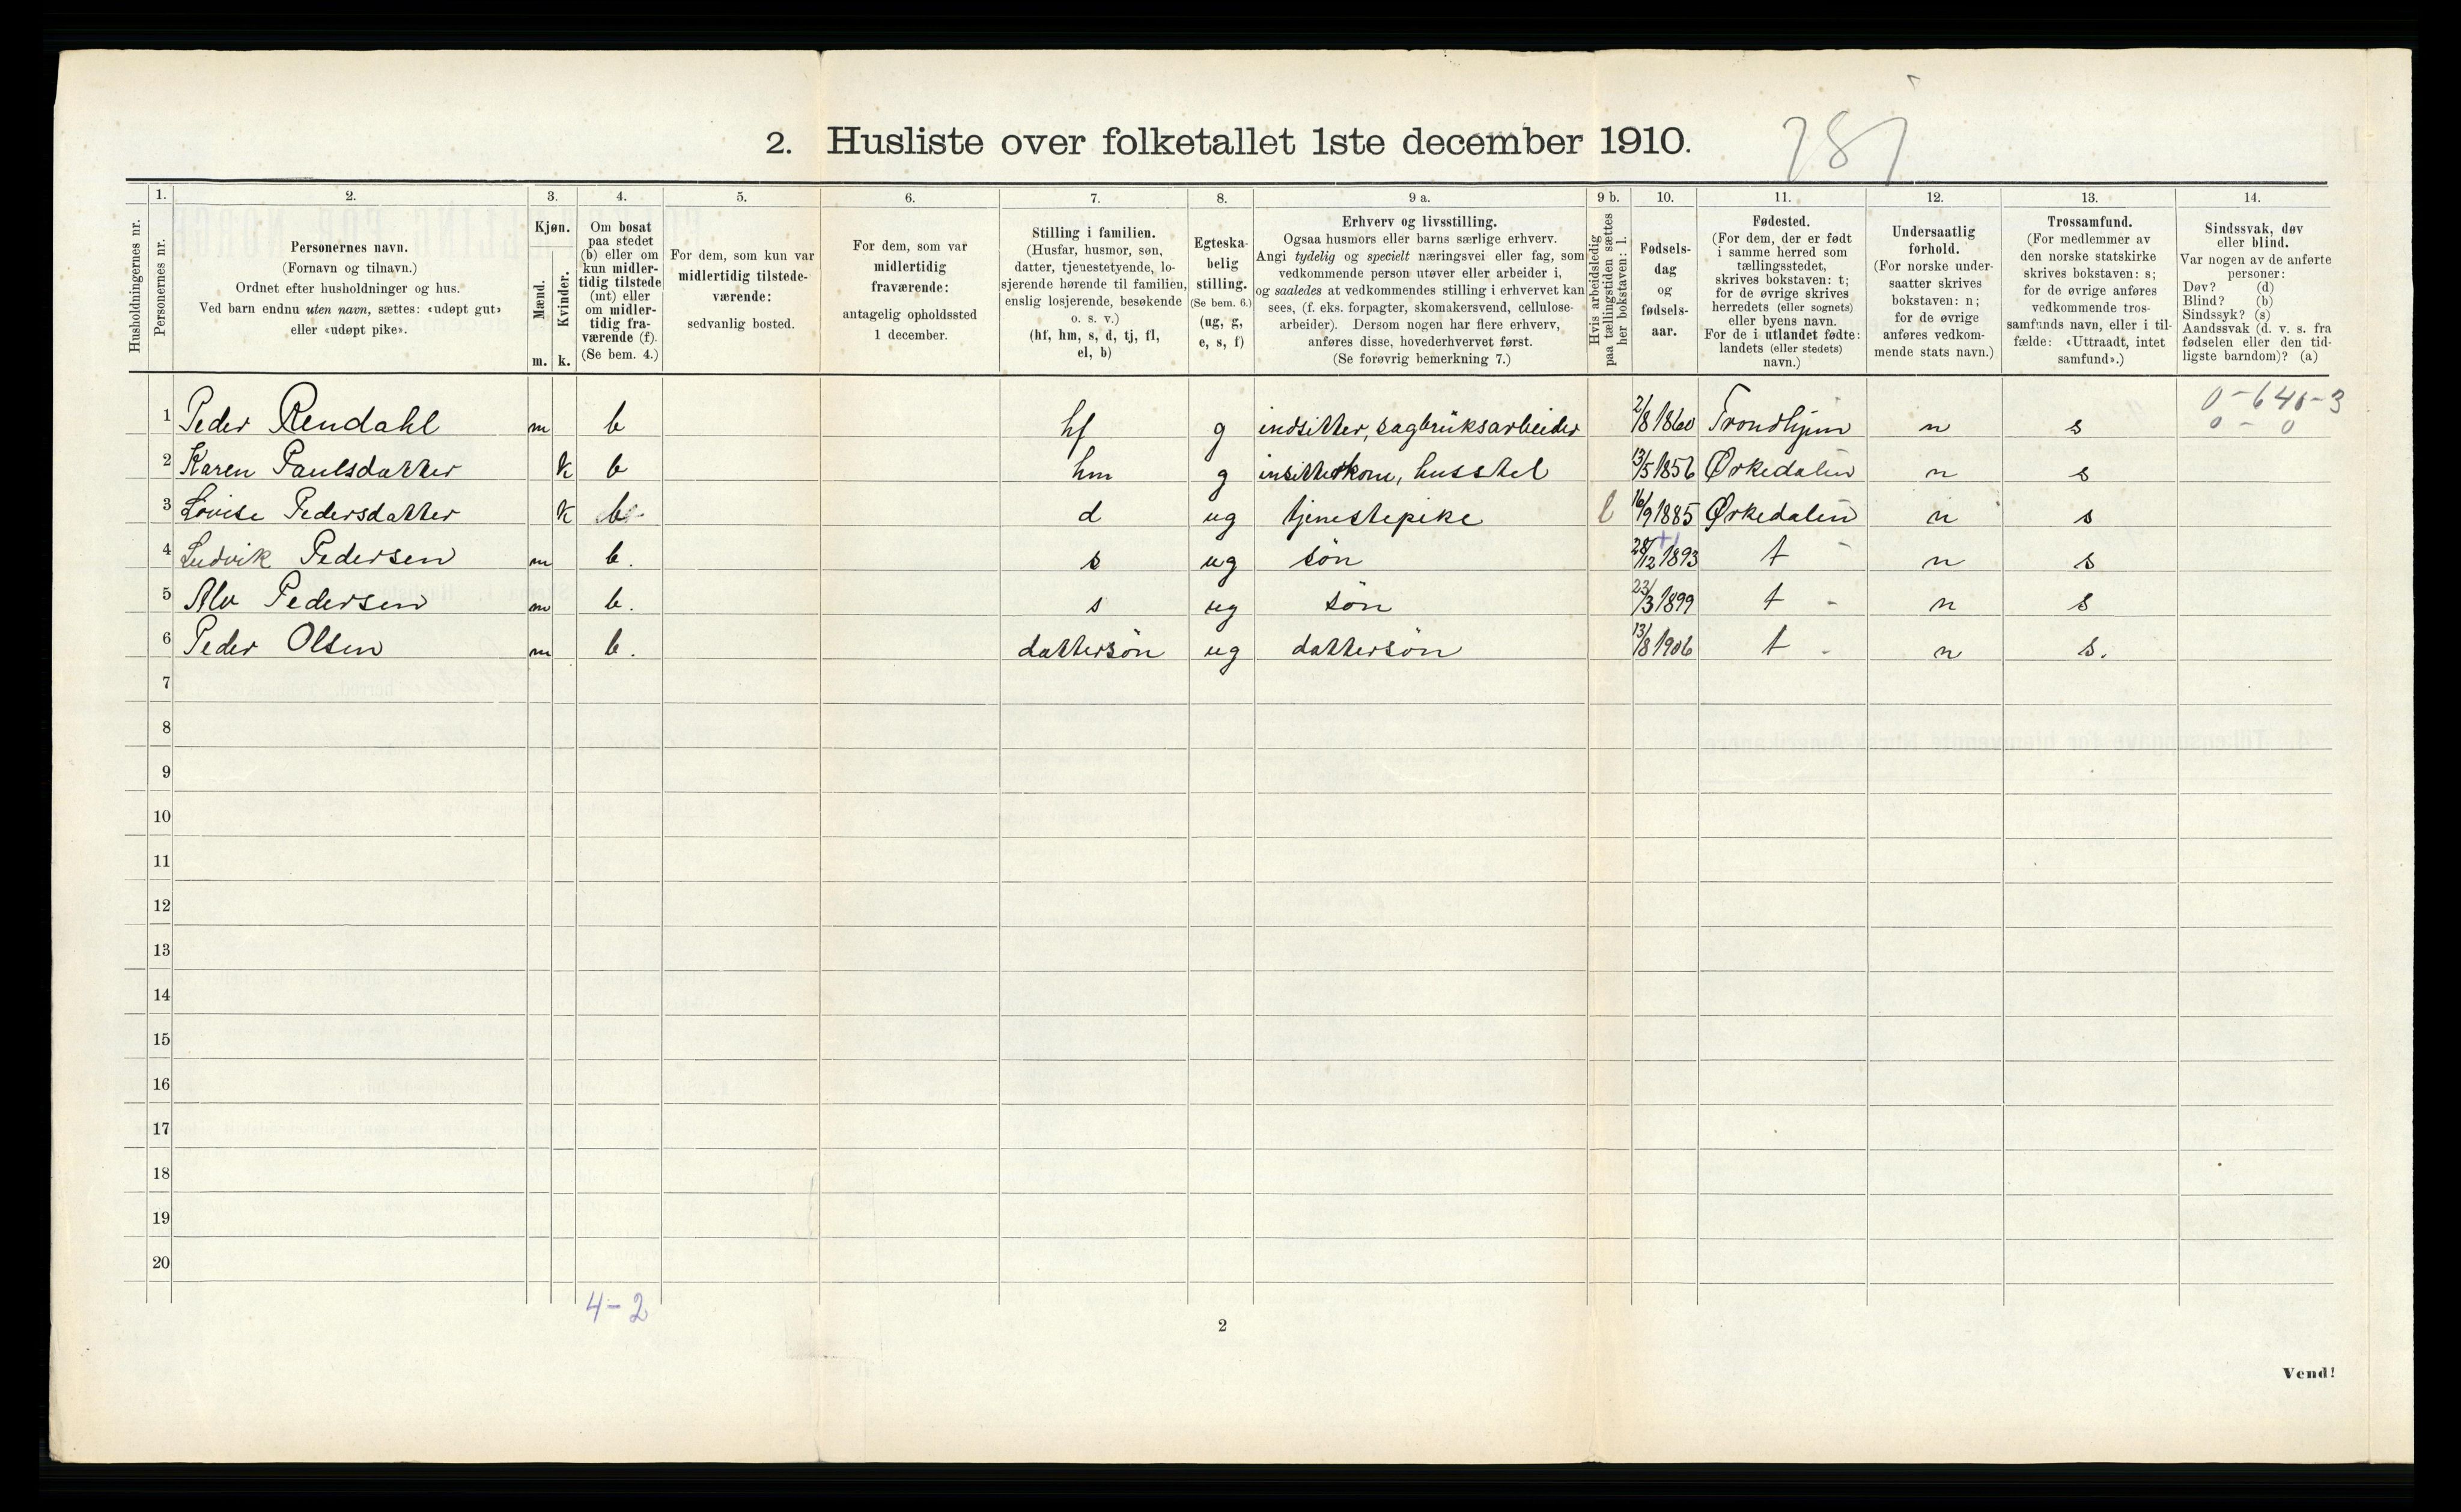 2. Husliste over folketallet 1ste december 1910.
1. 2. 3. 4. 5. 6. 7. 8. 9 a. 9 b. 10. 11. 12. 13. 14.
Husholdningernes nr.
Personernes nr.
Personernes navn.
(Fornavn og tilnavn.)
Ordnet efter husholdninger og hus.
Ved barn endnu uten navn, sættes: «udøpt gut»
eller «udøpt pike».
Kjøn.
Mænd.
Kvinder.
m. k.
Om bosat
paa stedet
(b) eller om
kun midler-
tidig tilstede
(mt) eller
om midler-
tidig fra-
værende (f).
(Se bem. 4.)
For dem, som kun var
midlertidig tilstede-
værende:
sedvanlig bosted.
For dem, som var
midlertidig
fraværende:
antagelig opholdssted
1 december.
Stilling i familien.
(Husfar, husmor, søn,
datter, tjenestetyende, lo-
sjerende hørende til familien,
enslig losjerende, besøkende
o. s. v.)
(hf, hm, s, d, tj, fl,
el, b)
Egteska-
belig
stilling.
(Se bem. 6.)
(ug, g,
e, s, f)
Erhverv og livsstilling.
Ogsaa husmors eller barns særlige erhverv.
Angi tydelig og specielt næringsvei eller fag, som
vedkommende person utøver eller arbeider i,
og saaledes at vedkommendes stilling i erhvervet kan
sees, (f. eks. forpagter, skomakersvend, cellulose-
arbeider). Dersom nogen har flere erhverv,
anføres disse, hovederhvervet først.
(Se forøvrig bemerkning 7.)
Hvis arbeidsledig
paa tællingstiden sættes
her bokstaven: l.
Fødsels-
dag
og
fødsels-
aar.
Fødested.
(For dem, der er født
i samme herred som
tællingsstedet,
skrives bokstaven: t;
for de øvrige skrives
herredets (eller sognets)
eller byens navn.
For de i utlandet fødte:
landets (eller stedets)
navn.)
Undersaatlig
forhold.
(For norske under-
saatter skrives
bokstaven: n;
for de øvrige
anføres vedkom-
mende stats navn.)
Trossamfund.
(For medlemmer av
den norske statskirke
skrives bokstaven: s;
for de øvrige anføres
vedkommende tros-
samfunds navn, eller i til-
fælde: «Uttraadt, intet
samfund».)
Sindssvak, døv
eller blind.
Var nogen av de anførte
personer:
Døv? (d)
Blind? (b)
Sindssyk? (s)
Aandssvak (d. v. s. fra
fødselen eller den tid-
ligste barndom)? (a)
1 Peder Rendahl m b hf g indsitter, sagbruksarbeider 2/8 1860 Trondhjem n s 0 - 0
2 Karen Paulsdatter k b hm g insitterkone, husstel 13/5 1856 Ørkedalen n s
3 Lovise Pedersdatter k b d ug tjenestepike l 16/9 1885 Ørkedalen n s
4 Ludvik Pedersen m b. s ug søn 28/12 1893 t n s
5 Alv Pedersen m b. s ug søn 23/3 1899 t - n s
6 Peder Olsen m b. dattersøn ug dattersøn 13/8 1906 t - n s.
7
8
9
10
11
12
13
14
15
16
17
18
19
20
4-2
2
Vend!